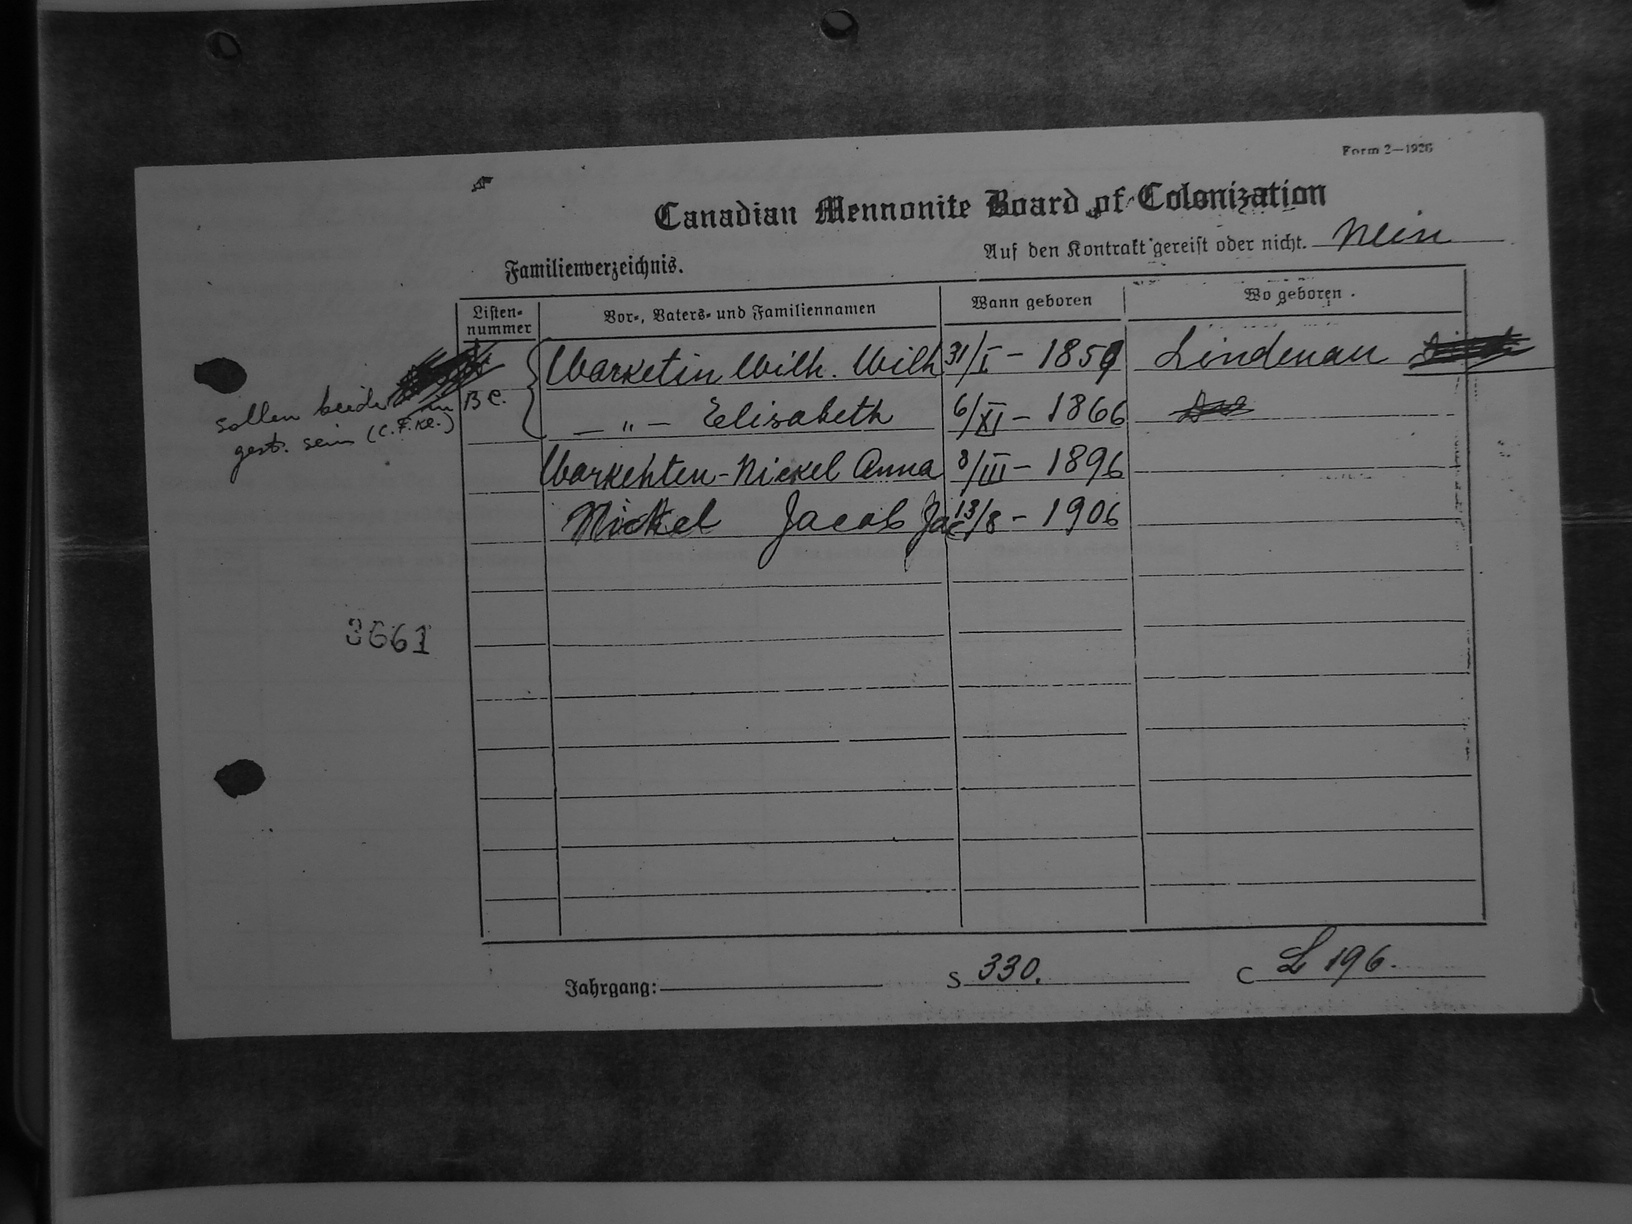 Form 2—1926
Canadian Mennonite Board of Colonization
Auf den Kontrakt gereist oder nicht. Nein
Familienverzeichnis.
Listen-nummer Vor-, Vaters- und Familiennamen Wann geboren Wo geboren.
Warketin Wilh. Wilh 31/I - 1859 Lindenau
sollen beide in B.C.
gest. sein (C.F.Kl.)
— " — Elisabeth 6/XI - 1866
Warkehten-Nickel Anna 8/III - 1896
Nickel Jacob Jac 13/8 - 1906
3661
Jahrgang: S 330. C L 196.